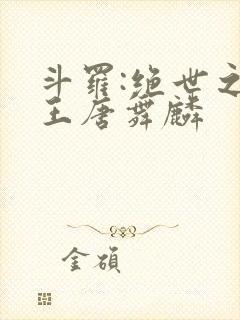 斗羅:绝世之
王唐舞麟
金碩